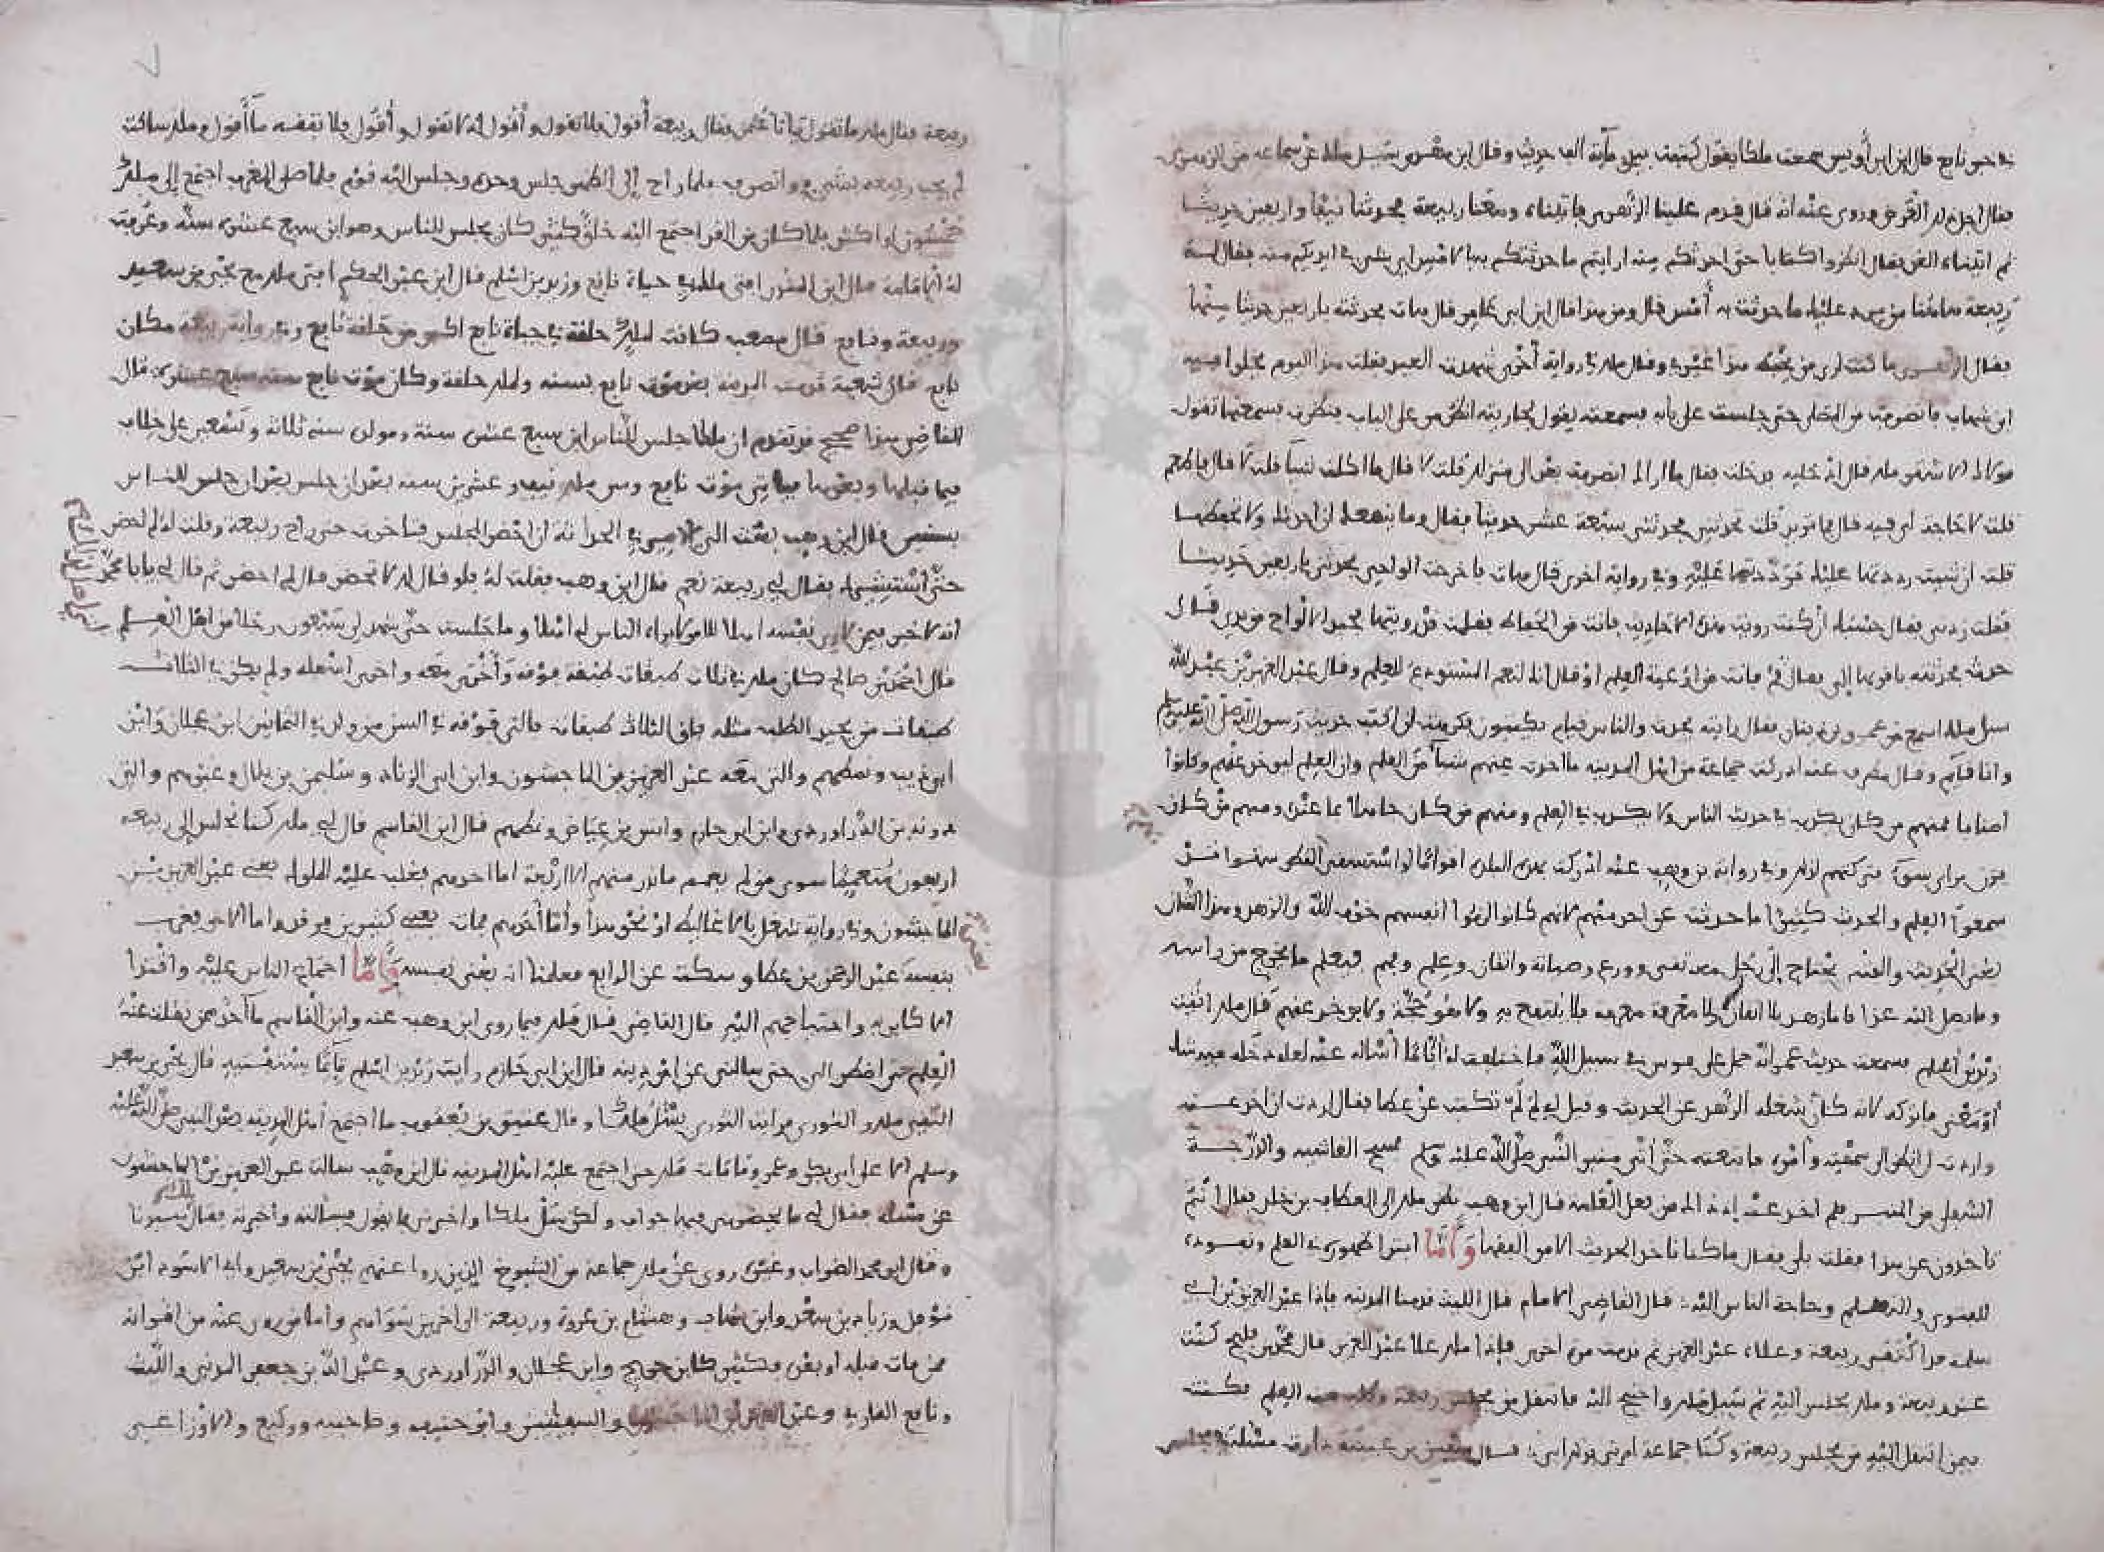 في حبر نافع قال ابن ابي أويس سمعت ملكا يقول كتبت بيدي مائة الف حديث وقال ابن
فقال اجل ذلك العرض وروى عنه انه قال قدم علينا الزهري فاتيناه ومعنا ربيعة فحدثنا نيفا واربعين حديثا
ثم اتيناه الغد فقال انظروا كتابا حتى احدثكم منه ارايتم ما حدثتكم به بالامس اي شيء في ايديكم منه فقال له
ربيعة هاهنا من يرد عليك ما حدثت به أمس قال ومن هذا قال ابن ابي عامر قال هات فحدثته باربعين حديثا منها
فقال الزهري ما كنت ارى من يحفظ هذا غيري وقال ملك في رواية أخرى شهدت العيد فقلت هذا اليوم يخلوا فيه
ابن شهاب فانصرفت من المصلى حتى جلست على بابه فسمعته يقول لجاريته انظري من على الباب فنظرت فسمعتها تقول
مولاك الاشقر ملك قال ادخليه فدخلت فقال ما اراك انصرفت بعد الى منزلك قلت لا قال ما اكلت شيئا قلت لا قال فاطعم
قلت لا حاجة لي فيه قال فما تريد قلت تحدثني فحدثني سبعة عشر حديثا فقال وما ينفعك ان احدثك ولا تحفظها
قلت ان شئت رددتها عليك فرددتها عليه وفي رواية اخرى قال هات فاخرجت الواحي فحدثني باربعين حديثا
فقلت زدني فقال حسبك ان كنت رويت هذه الاحاديث فانت من الحفاظ فقلت قد رويتها فجبذ الالواح من يدي قال
حدث فحدثته بها فردها الي فقال قم فانت من اوعية العلم او قال انك لنعم المستودع للعلم وقال
سئل ملك اسمع من عمرو بن دينار فقال رايته يحدث والناس قيام يكتبون فكرهت ان اكتب حديث رسول الله صلى الله عليه وسلم
وانا قائم وقال مطرف عنه ادركت جماعة من اهل المدينة ما اخذت عنهم شيئا من العلم وان العلم ليوخذ عنهم وكانوا
اصنافا فمنهم من كان يكذب في حديث الناس ولا يكذب في العلم ومنهم من كان جاهلا بما عنده ومنهم من كان
يزن براي سوء فتركتهم لذلك وفي رواية بن وهب عنه ادركت بهذه البلدة اقواما لو استسقي بهم القطر سقوا قد
سمعوا العلم والحديث كثيرا ما حدثت عن احد منهم لانهم كانوا الزموا انفسهم خوف الله والزهد وهذا الشان
يعني الحديث والفتيا يحتاج إلى رجل معه تقى وورع وصيانة واتقان وعلم وفهم فيعلم ما يخرج من راسه
وما يصل اليه غدا فاما زهد بلا اتقان ولا معرفة فلا ينتفع به ولا هو حجة ولا يوخذ عنهم قال ملك اتيت
زيد بن أسلم فسمعت حديث عمر انه حمل على فرس في سبيل الله فاختلفت له أياما أسأله عنه لعله دخله فيه شك
أو معنى فاتركه لانه كان شغله الزهد عن الحديث وقيل له لم لم تكتب عن عطا فقال اردت ان اخذ عنه
واردت ان انظر الى سمته وأمره فاتبعته حتى أتى منبر النبي صلى الله عليه وسلم فمسح الغاشية والدرجة
السفلى من المنبر فلم اخذ عنه إذ ذاك من فعل العامة قال ابن وهب نظر ملك الى العطاف بن خلد فقال انتم
تاخذون عن هذا فقلت بلى فقال ما كنا ناخذ الحديث الا من الفقها وأما ابتدا ظهوره في العلم وقعوده
للفتوى والتعليم وحاجة الناس اليه قال القاضي الامام قال الليث قدمنا المدينة فاذا عبد العزيز بن ابي
سلمة قد اكتنفته ربيعة وعلاه عبد العزيز ثم قدمت مرة اخرى فإذا ملك علا عبد العزيز قال محمد بن فليح كنت
عند ربيعة وملك يجلس اليه ثم سئل ملك واحتيج اليه فانتقل من مجلس ربيعة العلم فكنت
فيمن انتقل اليه من مجلس ربيعة وكنا جماعة امرني بذلك ابي قال سفين بن عيينة دارت مسئلة في مجلس
ربيعة فقال ملك ما تقول يابا عثمن فقال ربيعة أقول فلا تقول وأقول لك لا تقول وأقول فلا تفقه ما أقول وملك ساكت
لم يجب ربيعة بشيء وانصرف فلما راح إلى الظهر جلس وحده وجلس اليه قوم فلما صلى المغرب اجتمع إلى ملك
خمسون او اكثر فلما كان من الغد اجتمع اليه خلق كثير كان يجلس للناس وهو ابن سبع عشرة سنة وعرفت
له الامامة قال ابن المنذر افتى ملك في حياة نافع وزيد بن اسلم قال ابن عبد الحكم افتى ملك مع يحيى بن سعيد
وربيعة ونافع قال مصعب كانت لملك حلقة في حياة نافع اكبر من حلقة نافع وفي رواية ربيعة مكان
نافع قال شعبة قدمت المدينة بعد موت نافع بسنة ولملك حلقة وكان موت نافع سنة سبع عشرة قال
القاضي هذا صحيح قد تقدم ان ملكا جلس للناس ابن سبع عشرة سنة ومولده سنة ثلاثة وتسعين على خلاف
فيما قبلها وبعدها فياتي موت نافع وسن ملك نيف وعشرين سنة بعد ان جلس بعد ان جلس للناس
بسنين قال ابن وهب بعث الي الامير في الحداثة ان احضر المجلس فتاخرت حتى راح ربيعة وقلت له لم احضر
حتى أستشيرك فقال لي ربيعة نعم قال ابن وهب فقلت له فلو قال لك لا تحضر قال لم احضر ثم قال لي يابا محمد
انه لا خير فيمن يرى نفسه اهلا لامر لا يراه الناس له اهلا وما جلست حتى شهد لي سبعون رجلا من اهل العلم
قال احمد بن صالح كان ملك في ثلاث طبقات طبقة فوقه وأخرى معه واخرى اسفله ولم يكن في الثلاث
طبقات من يجيد الطلب مثله فاق الثلاث طبقات فالتي فوقه في السن من ولد في الثمانين ابن عجلان وابن
ابي ذيب ونمطهم والتي معه عبد العزيز بن الماجشون وابن ابي الزناد وسليمن بن بلال وغيرهم والتي
دونه بن الدراوردي وابن ابي حازم وانس بن عياض ونمطهم قال ابن القاسم قال لي ملك كنا نجلس إلى ربيعة
اربعون متعمما سوى من لم يعتم ما ادرك منهم الا اربعة اما احدهم فغلب عليه الملوك يعني عبد العزيز بن
الماجشون وفي رواية شغل بالاغاليط او نحو هذا وأما أخرهم فمات يعني كثير بن فرقد واما الاخر فغرب
بنفسه عبد الرحمن بن عطا وسكت عن الرابع فعلمنا انه يعني نفسه وأما اجتماع الناس عليه واقتدا
الاكابر به واحتياجهم اليه قال القاضي قال ملك فيما روى ابن وهب عنه وابن القاسم ما أحد ممن نقلت عنه
العلم حتى اضطر الي حتى سالني عن امر دينه قال ابن ابي حازم رأيت زيد بن اسلم قائما يستفتيه قال يحيى بن سعيد
التقى ملك والثوري فرايت الثوري يسأل ملكا وقال عتيق بن يعقوب ما اجتمع أهل المدينة بعد النبي صلى الله عليه
وسلم الا على أبي بكر وعمر ومات ملك حين اجتمع عليه اهل المدينة قال ابن وهب سالت عبد العزيز بن الماجشون
عن مسئلة فقال لي ما يحضرني فيها جواب ولكن سل ملكا واخبرني ما يقول فسألته واخبرته فقال سيدنا
وقال ابو محمد الضراب وغيره روى عن ملك جماعة من الشيوخ الذين روا عنهم يحيى بن سعيد وابو الاسود ابن
نوفل وزياد بن سعد وابن شهاب وهشام بن عروة وربيعة الى اخرين سواهم وأما من روى عنه من اقرانه
ممن مات قبله أو بعده فكثير كابن جريج وابن عجلان والدراوردي وعبد الله بن جعفر المدني والليث
ونافع القارئ وعبد العزيز بن الماجشون والسفيانين وابو حنيفة وصاحبيه ووكيع والاوزاعي